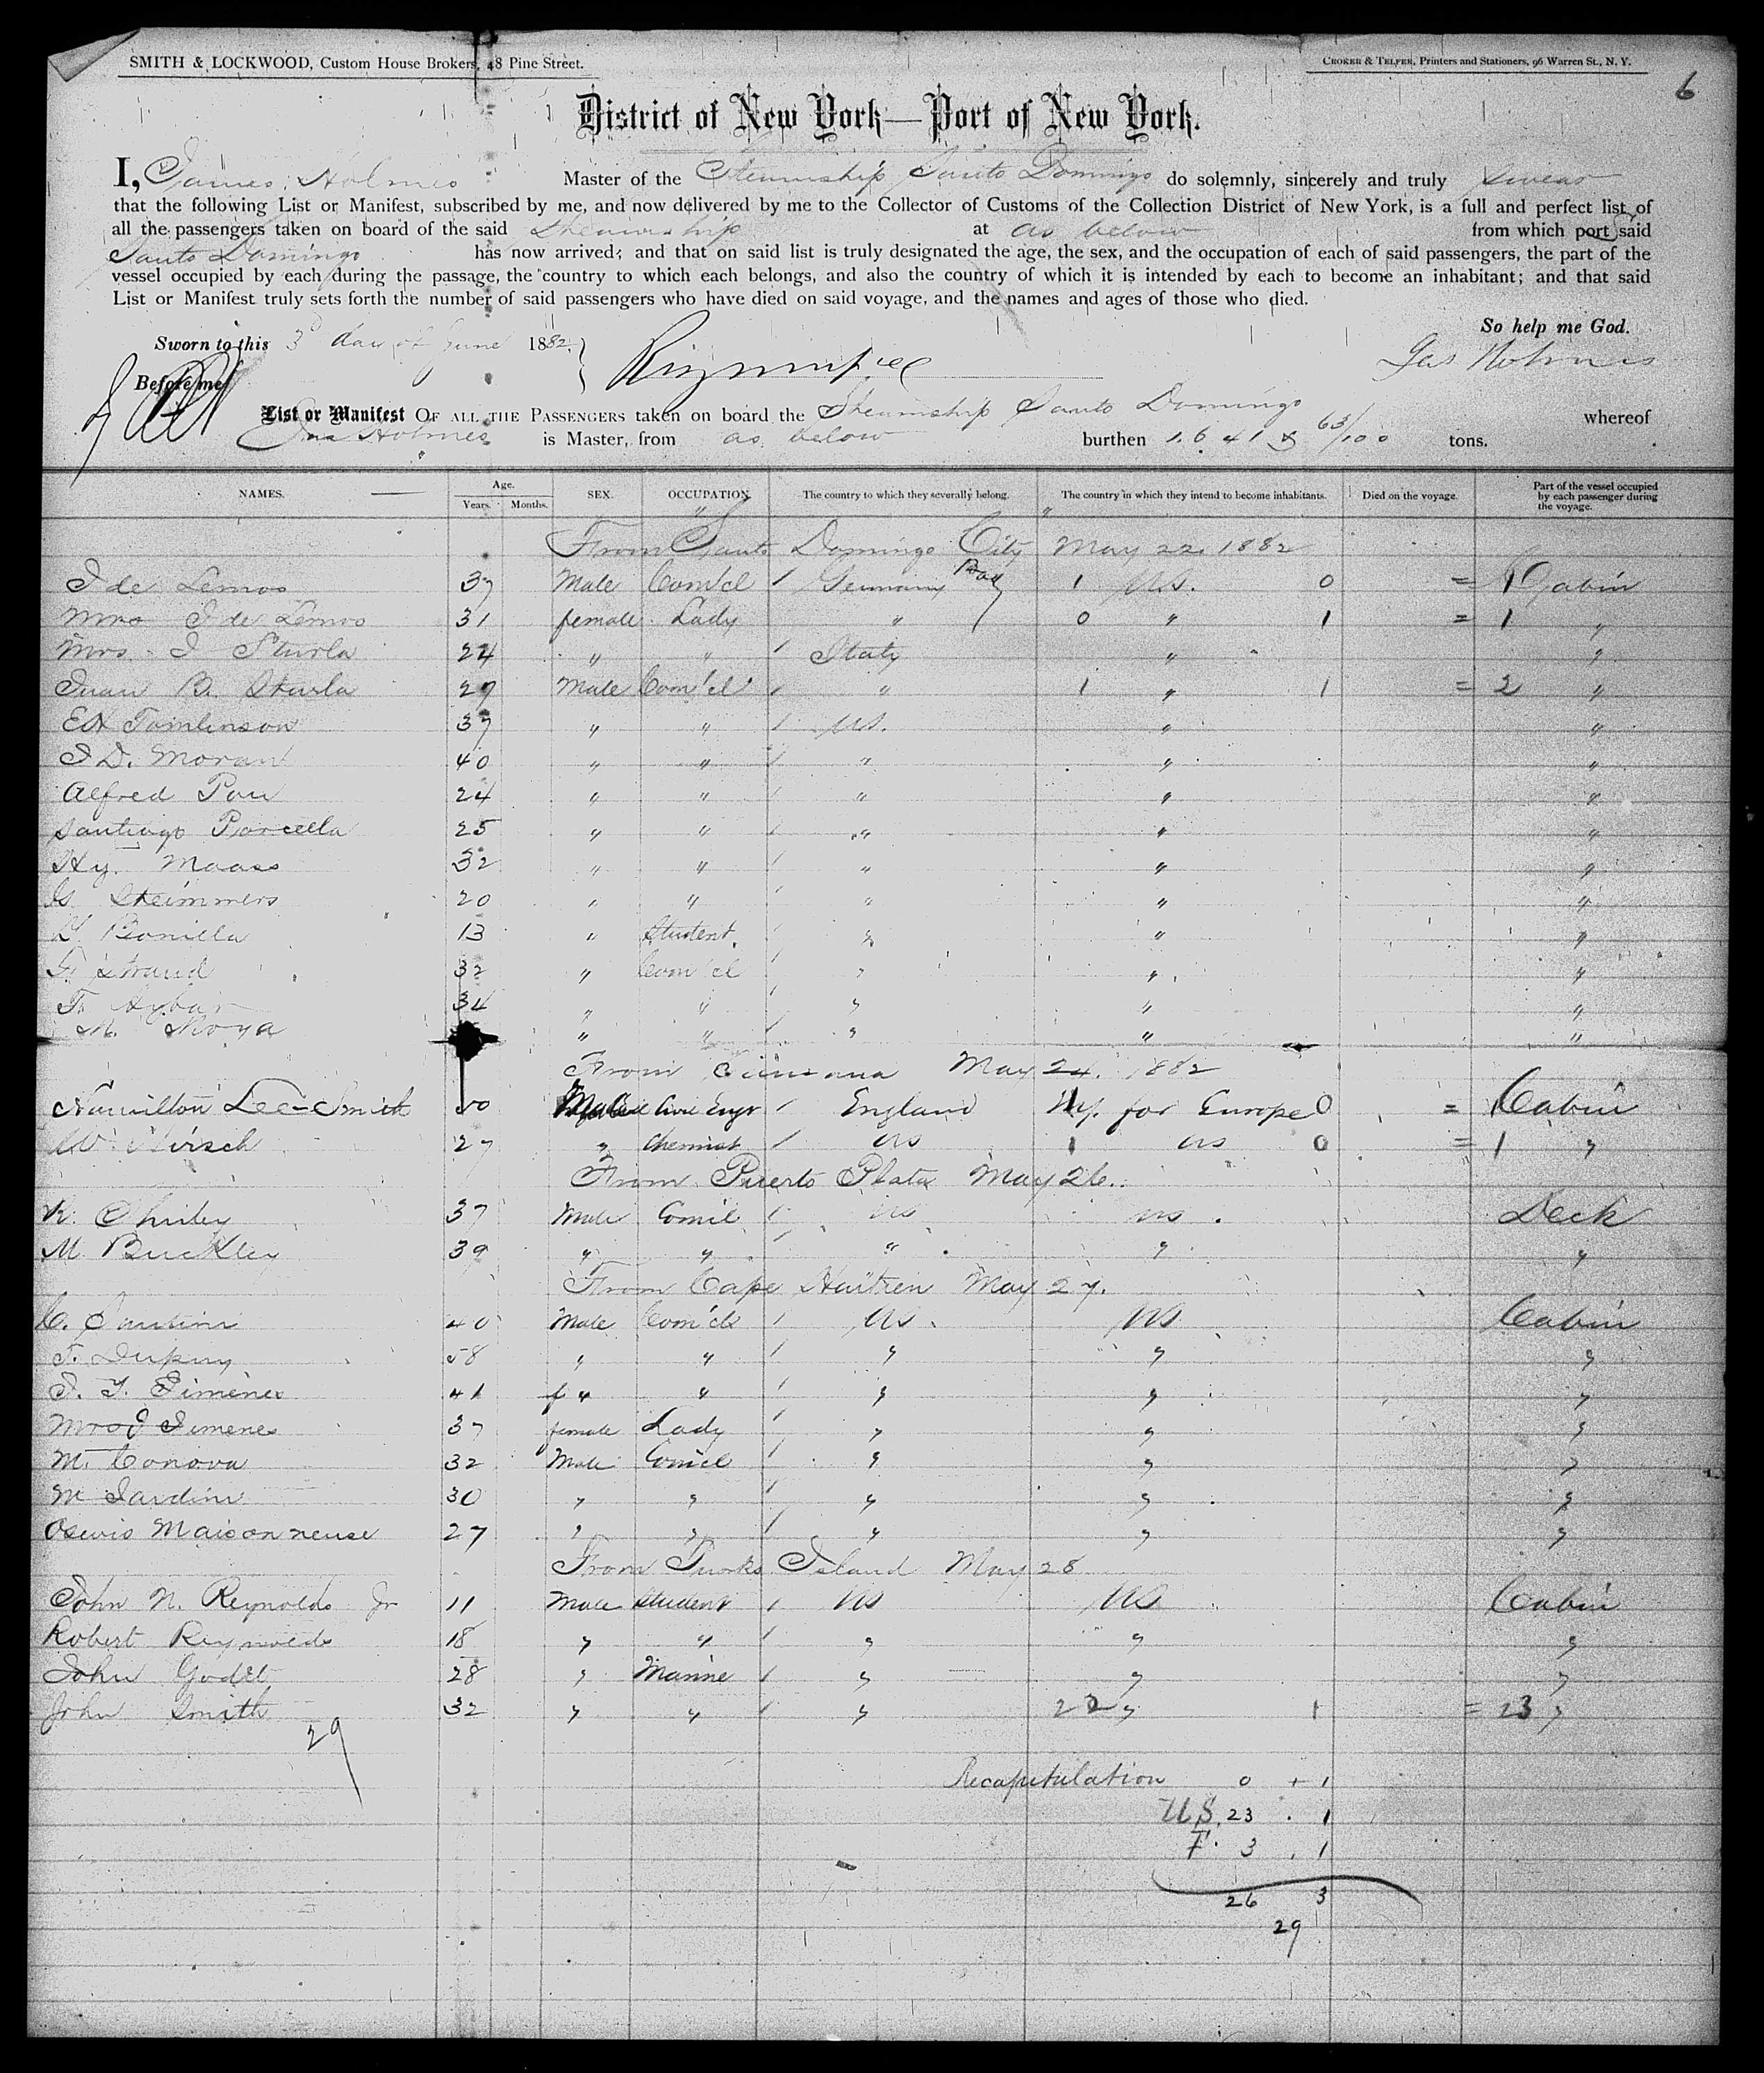 SMITH & LOCKWOOD, Custom House Brokers, 48 Pine Street. CROKER & TELFER, Printers and Stationers, 96 Warren St., N. Y.
6
District of New York—Port of New York.
I, James Holmes Master of the Steamship Santo Domingo do solemnly, sincerely and truly swear
that the following List or Manifest, subscribed by me, and now delivered by me to the Collector of Customs of the Collection District of New York, is a full and perfect list of
all the passengers taken on board of the said Steamship at as below from which port said
Santo Domingo has now arrived; and that on said list is truly designated the age, the sex, and the occupation of each of said passengers, the part of the
vessel occupied by each during the passage, the country to which each belongs, and also the country of which it is intended by each to become an inhabitant; and that said
List or Manifest truly sets forth the number of said passengers who have died on said voyage, and the names and ages of those who died.
So help me God.
Sworn to this 3d day of June 1882. Jas Holmes
Before me
List or Manifest OF ALL THE PASSENGERS taken on board the Steamship Santo Domingo whereof
Jas Holmes is Master, from as below burthen 1641 & 63/100 tons.
NAMES. Age. Years. Months. SEX. OCCUPATION. The country to which they severally belong. The country in which they intend to become inhabitants. Died on the voyage. Part of the vessel occupied by each passenger during the voyage.
From Santo Domingo City May 22, 1882
J de Lemos 37 Male Com'cl / Germany 1 U.S. 0 = 1 Cabin
Mrs J de Lemos 31 female Lady " / 0 " 1 = 1 "
Mrs J Sturla 24 " " / Italy " "
Juan B. Sturla 27 Male Com'cl / " 1 " 1 = 2 "
Ed Tomlinson 37 " " / U.S. " "
J D. Moran 40 " " / " " "
Alfred Pou 24 " " / " " "
Santiago Porcella 25 " " / " " "
Hy. Maass 32 " " / " " "
G Steimmers 20 " " / " " "
Y Bonilla 13 " Student / " " "
F. Strand 32 " Com'cl / " " "
F. Aybar 34 " " / " " "
M. Moya " " / " " "
From Samana May 24. 1882
Hamilton Lee-Smith Male Civil Engr / England Ny. for Europe 0 = 1 Cabin
W Hirsch 27 " Chemist / US 1 US 0 = 1 "
From Puerto Plata May 26.
K. Shuley 37 Male Comcl / US US. Deck
M Buckley 39 " " / " " "
From Cape Haitien May 27.
C. Santini 40 Male Com'cl / US. US Cabin
F. Dupuy 58 " " / " " "
J. Y. Jimenes 41 " " / " " "
Mrs J Jimenes 37 female Lady / " " "
M. Conova 32 Male Comcl / " " "
M Jardini 30 " " / " " "
Maisonneuse 27 " " / " " "
From Turks Island May 28
John N. Reynolds Jr 11 Male Student / US US Cabin
Robert Reynolds 18 " " / " " "
John Godet 28 " Marine / " " "
John Smith 32 " " / " 22 " 1 = 23 "
29
Recapitulation 0 + 1
U S. 23 . 1
F. 3 . 1
26 3
29